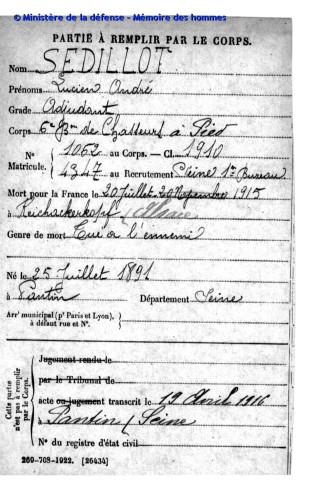 © Ministère de la défense - Mémoire des hommes
PARTIE À REMPLIR PAR LE CORPS.
Nom SEDILLOT
Prénoms Lucien André
Grade Adjudant
Corps 6e Bon de Chasseurs à Pied
N° 1062 au Corps. — Cl. 1910
Matricule. 4347 au Recrutement Seine 1er Bureau
Mort pour la France le 20 Juillet 20 Novembre 1915
à Reichackerkopf (Alsace)
Genre de mort Tué à l'ennemi
Né le 25 Juillet 1891
à Pantin Département Seine
Arrt municipal (pr Paris et Lyon),
à défaut rue et N°.
Cette partie
n'est pas à remplir
par le Corps.
Jugement rendu le
par le Tribunal de
acte ou jugement transcrit le 19 Avril 1916
à Pantin / Seine
N° du registre d'état civil
260-708-1922. [26434]